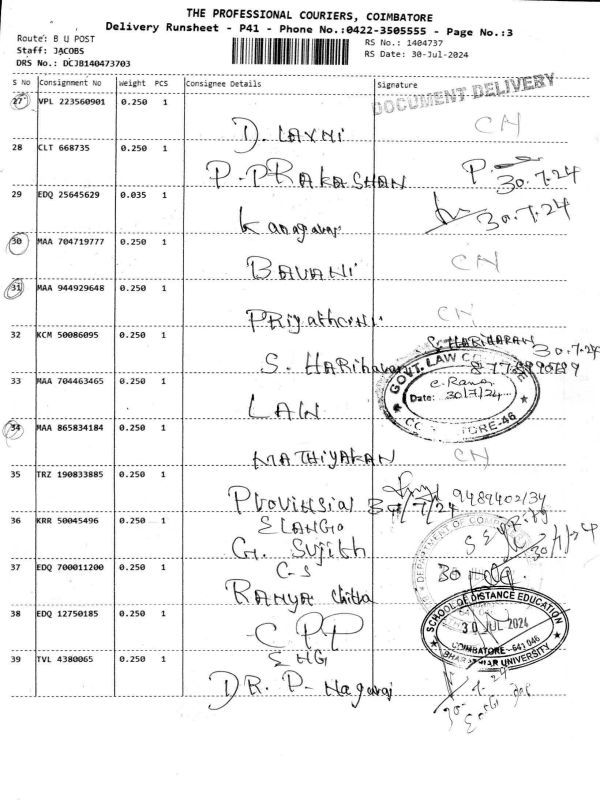 THE PROFESSIONAL COURIERS, COIMBATORE
Delivery Runsheet - P41 - Phone No.:0422-3505555 - Page No.:3
Route: B U POST
Staff: JACOBS
DRS No.: DCJB140473703
RS No.: 1404737
RS Date: 30-Jul-2024
S No Consignment No Weight PCS Consignee Details Signature
DOCUMENT DELIVERY
27 VPL 223560901 0.250 1
D. LAXNI CN
28 CLT 668735 0.250 1
P. PRAKASHAN P. 30.7.24
29 EDQ 25645629 0.035 1
Kanagaraj 30.7.24
30 MAA 704719777 0.250 1
BAVANI CN
31 MAA 944929648 0.250 1
CN
32 KCM 50086095 0.250 1
S. HARIHARAN 30.7.24
S. HARIharan
33 MAA 704463465 0.250 1
GOVT. LAW
Date: 30/7/24
LAW
34 MAA 865834184 0.250 1
MATHIYAKAN CN
35 TRZ 190833885 0.250 1
Provinsial 30/7/24
36 KRR 50045496 0.250 1
ELANGO
G. Sujith
DEPARTMENT OF
37 EDQ 700011200 0.250 1
C-S
RANYA chitha
38 EDQ 12750185 0.250 1
CPP
SCHOOL OF DISTANCE EDUCATION
30 JUL 2024
COIMBATORE - 641 046
BHARATHIAR UNIVERSITY
39 TVL 4380065 0.250 1
ENG
DR. P. Nagaraj